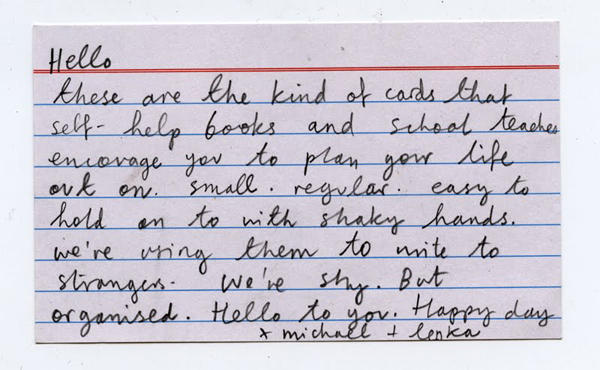 Hello
these are the kind of cards that
self-help books and school teaches
encourage you to plan your life
out on. small. regular. easy to
hold on to with shaky hands.
we're using them to write to
strangers. We're shy. But
organised. Hello to you. Happy day
x michael + lenka